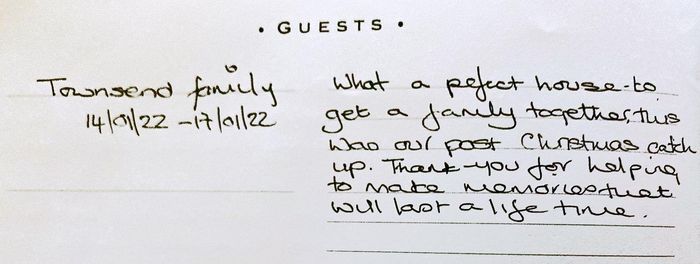 • GUESTS •
Townsend family
14/01/22 - 17/01/22
What a pefect house to
get a family together, this
was our post Christmas catch
up. Thank-you for helping
to make memories that
will last a life time.